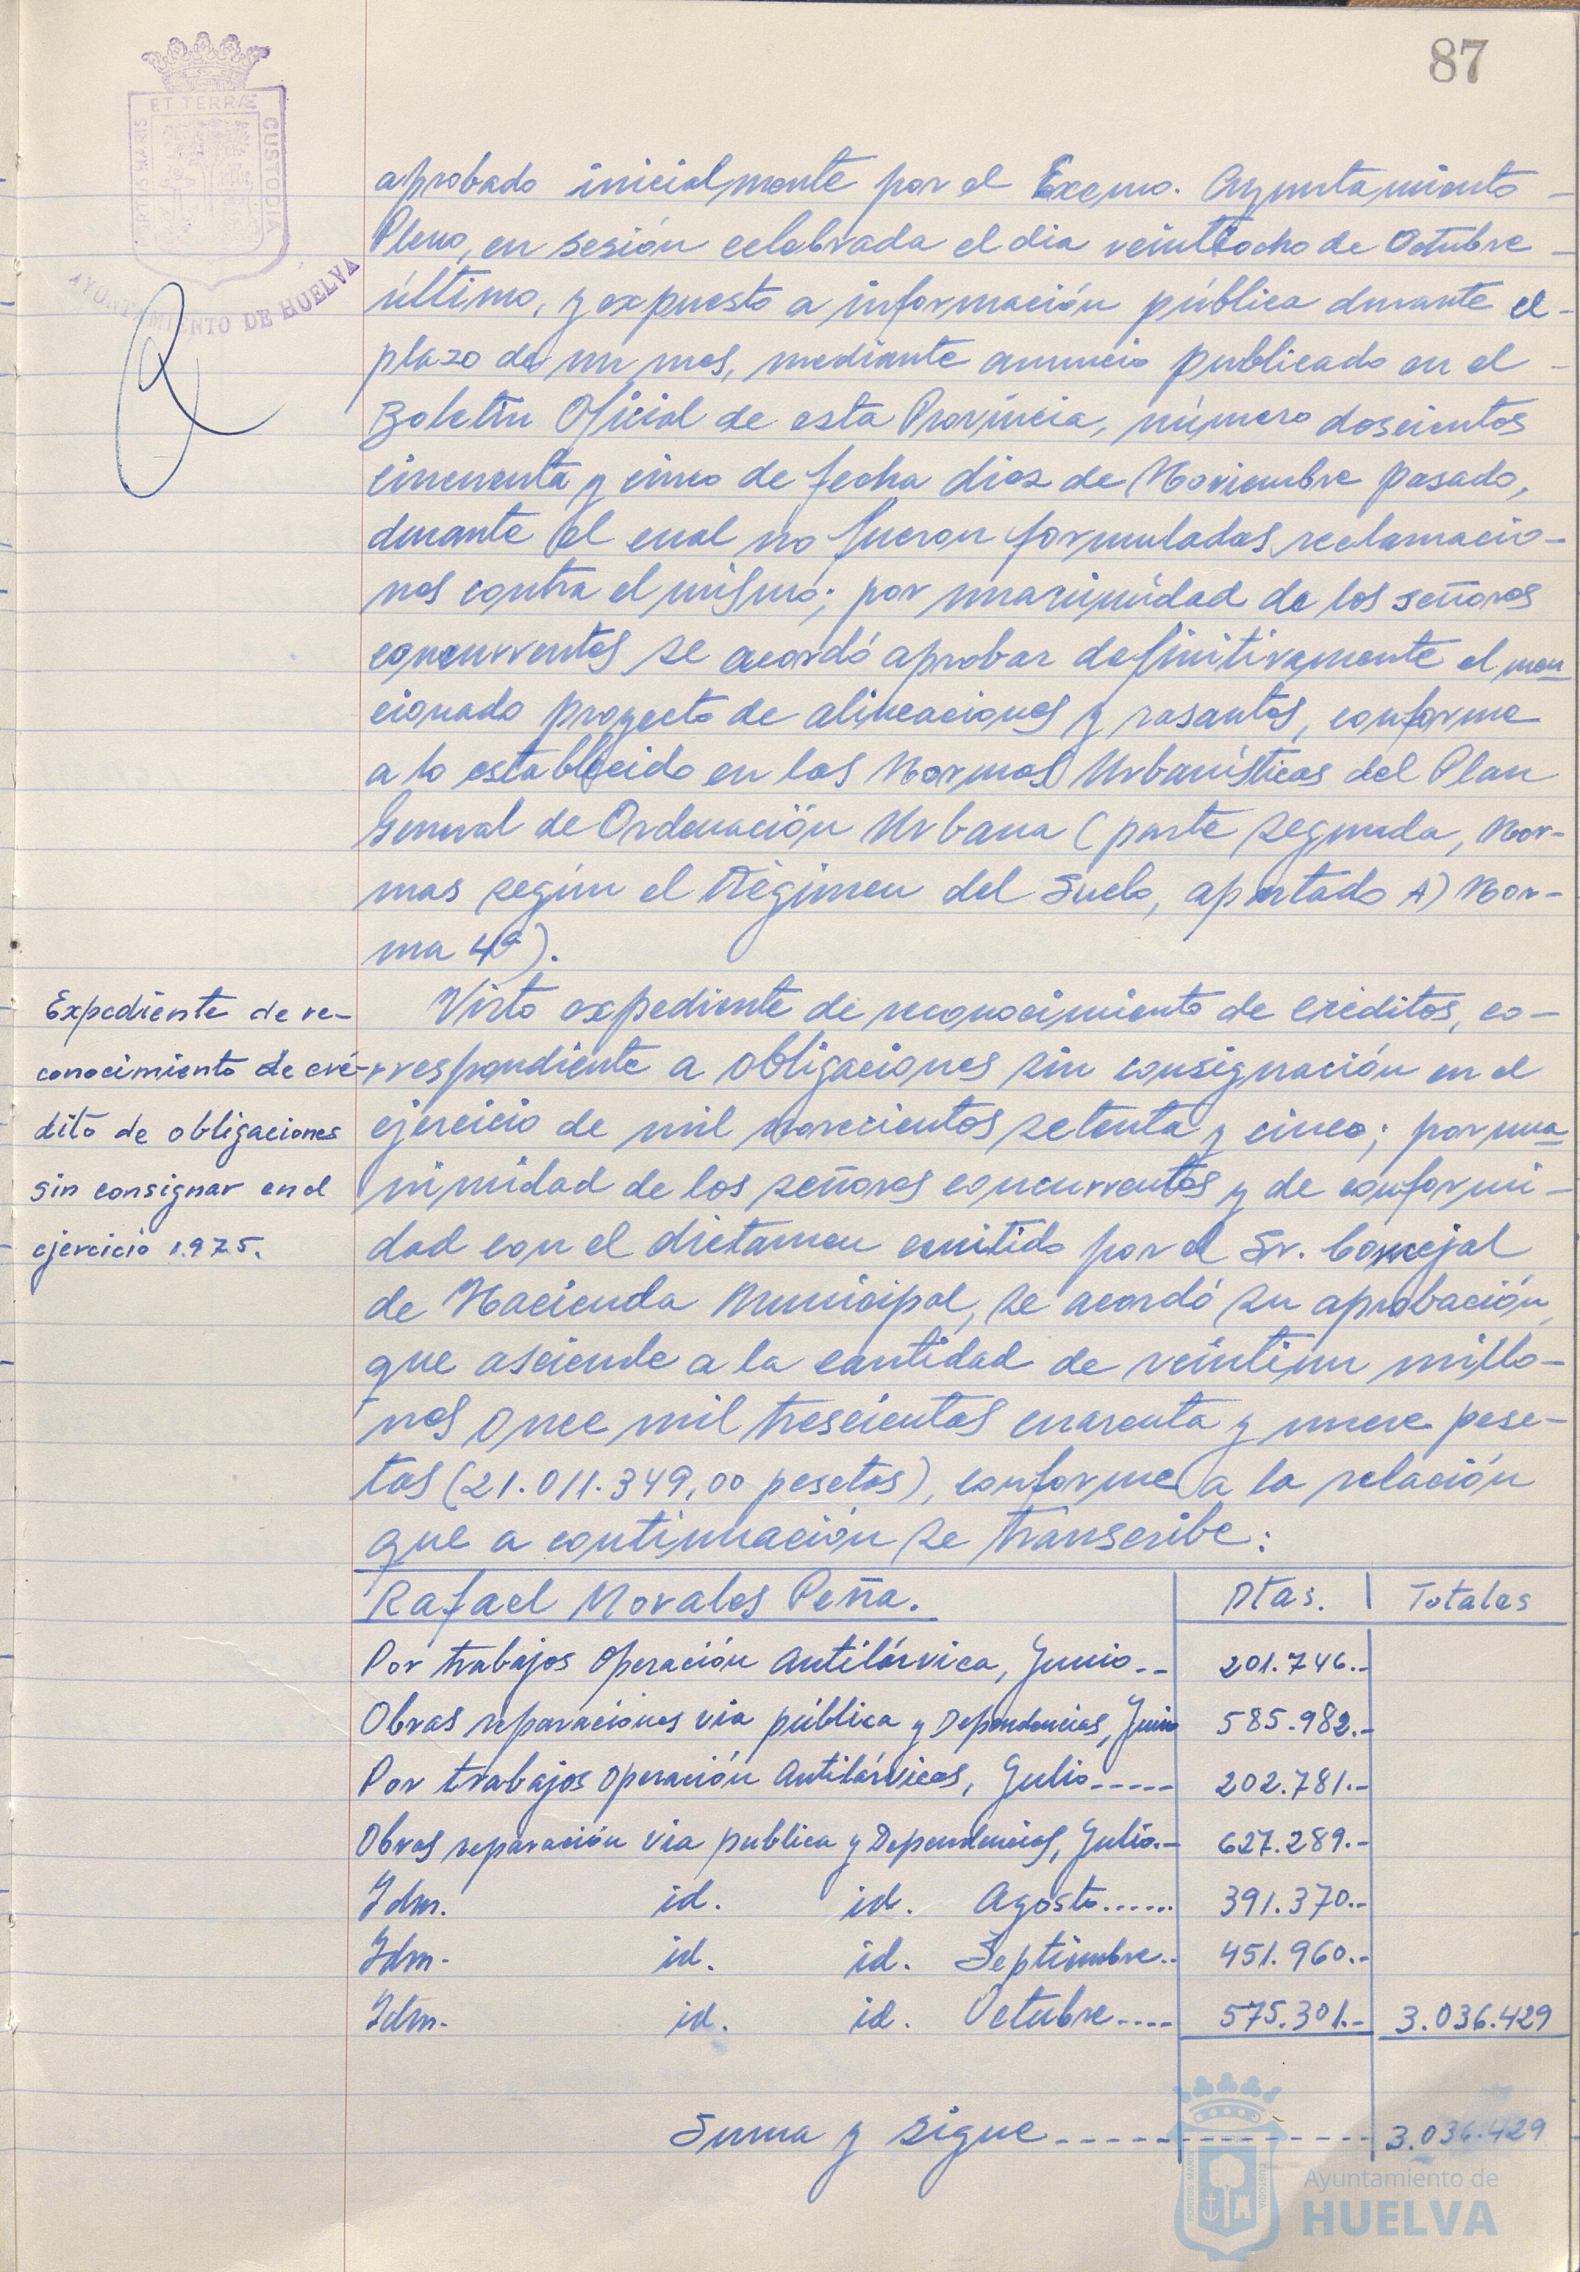 87
PORTUS MARIS ET TERRÆ CUSTODIA
AYUNTAMIENTO DE HUELVA
aprobado inicialmente por el Excmo. Ayuntamiento -
Pleno, en sesión celebrada el dia veintiocho de Octubre -
último, y expuesto a información pública durante el -
plazo de un mes, mediante anuncio publicado en el -
Boletín Oficial de esta Provincia, número doscientos
cincuenta y cinco de fecha diez de Noviembre pasado,
durante el cual no fueron formuladas reclamacio-
nes contra el mismo; por unanimidad de los señores
concurrentes se acordó aprobar definitivamente el men
cionado proyecto de alineaciones y rasantes, conforme
a lo establecido en las Normas Urbanísticas del Plan
General de Ordenación Urbana (parte segunda, Nor-
mas según el Régimen del Suelo, apartado A) Nor-
ma 4ª).
Expediente de re-
conocimiento de cré-
dito de obligaciones
sin consignar en el
ejercicio 1.975.
Visto expediente de reconocimiento de créditos, co-
rrespondiente a obligaciones sin consignación en el
ejercicio de mil novecientos setenta y cinco; por una
nimidad de los señores concurrentes y de conformi-
dad con el dictamen emitido por el Sr. Concejal
de Hacienda Municipal, se acordó su aprobación,
que asciende a la cantidad de veintiun millo-
nes once mil trescientas cuarenta y nueve pese-
tas (21.011.349,00 pesetas), conforme a la relación
que a continuación se transcribe:
Rafael Morales Peña. Ptas. Totales
Por trabajos Operación Antilárvica, Junio.-- 201.746.-
Obras reparaciones via pública y Dependencias, Junio 585.982.-
Por trabajos operación Antilárvicas, Julio----- 202.781.-
Obras reparación via publica y Dependencias, Julio.-- 627.289.-
Idm. id. id. Agosto...... 391.370.-
Idm. id. id. Septiembre.. 451.960.-
Idm. id. id. Octubre---- 575.301.- 3.036.429
Suma y sigue-------------- 3.036.429
PORTUS MARIS CUSTODIA
Ayuntamiento de
HUELVA